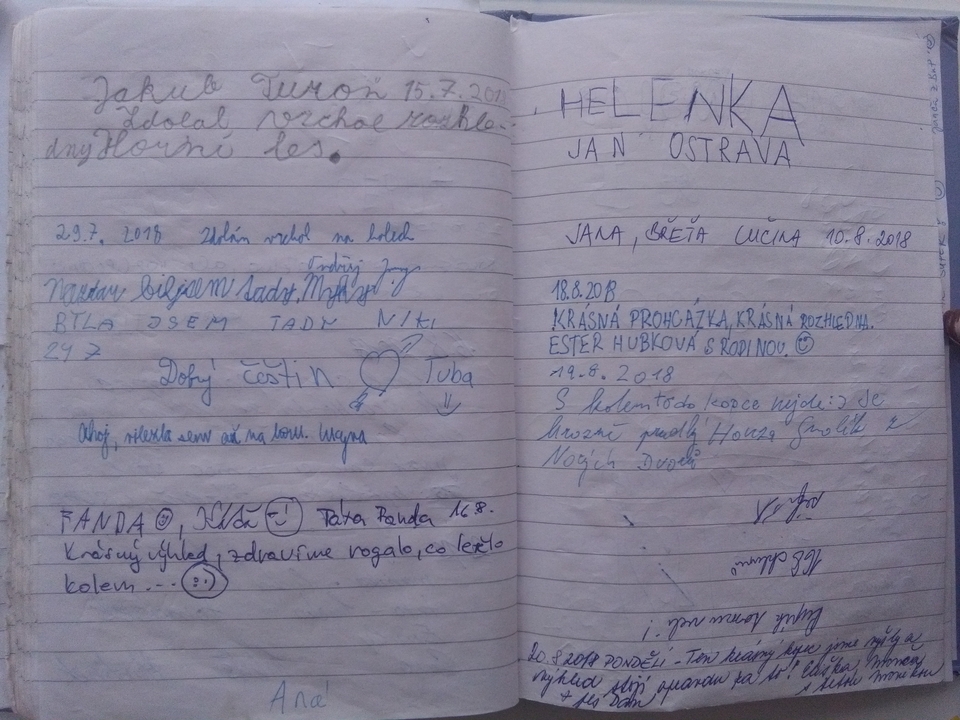 Jakub Turoň 15.7.2018
Zdolal vrchol rozhle-
dny Horní les.
29.7. 2018 Zdolán vrchol na kolech
Ondřej
BYLA JSEM TADY NIKI
24 7
Dobrý češtin Tuba
Ahoj, vilezla sem až na horu. Lucyna
FANDA, Táta Fanda 16.8.
Krásný výhled, zdravíme rogalo, co letělo
kolem...
HELENKA
JAN OSTRAVA
JANA, BŘEŤA LUČINA 10.8.2018
18.8.2018
KRÁSNÁ PROHCÁZKA, KRÁSNÁ ROZHLEDNA.
ESTER HUBKOVÁ S RODINOU.
19.8.2018
S kolem to do kopce nejde :) Je
hrozně prudký Honza Smolík z
Nových Dvorů
168
20.8.2018 PONDĚLÍ - Ten krásný kopec jsme vyšly a
výhled stojí opravdu za to! Eliška,
+ pes